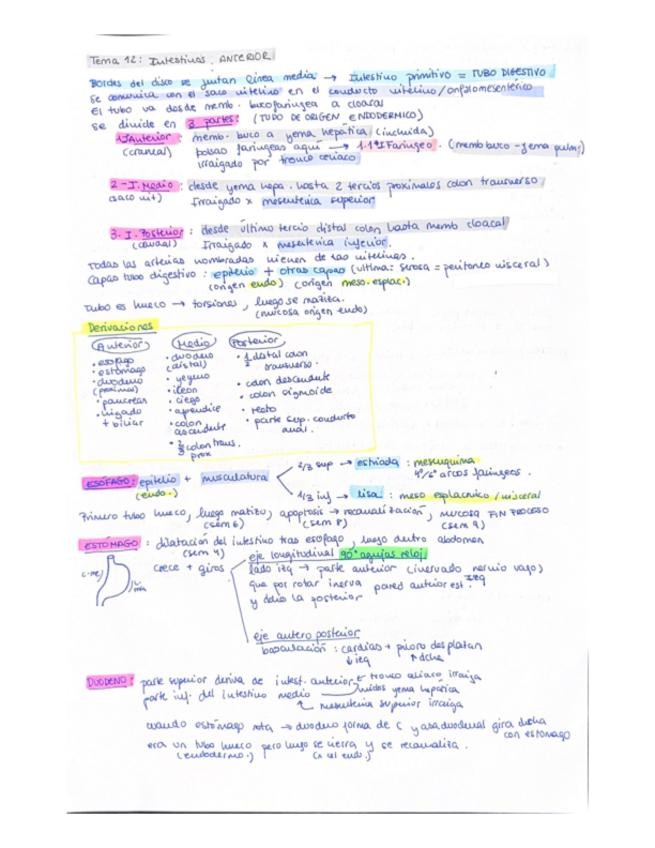 Tema 12: Intestinos. ANTERIOR
Bordes del disco se juntan línea media → Intestino primitivo = TUBO DIGESTIVO
Se comunica con el saco vitelino en el conducto vitelino/onfalomesentérico
El tubo va desde memb. bucofaríngea a cloacal
se divide en 3 partes: (TUBO DE ORIGEN ENDODÉRMICO)
1. I. Anterior: memb. buco a yema hepática (incluida)
(craneal) bolsas faríngeas aquí → 1.1º I Faríngeo. (memb buco - yema pulm)
irraigado por tronco celíaco
2 - I. Medio: desde yema hepa. hasta 2 tercios proximales colon transverso
(saco vit) Irraigado x mesentérica superior
3. I. Posterior: desde último tercio distal colon hasta memb cloacal
(caudal) Irraigado x mesentérica inferior.
Todas las arterias nombradas vienen de las vitelinas.
Capas tubo digestivo: epitelio + otras capas (última: serosa = peritoneo visceral)
(origen endo) (origen meso. esplac.)
Tubo es hueco → torsiones, luego se maciza.
(mucosa origen endo)
Derivaciones
Anterior Medio Posterior
• esofago • duodeno (distal) • 1/3 distal colon transverso.
• estómago • yeyuno • colon descendente
• duodeno (proximal) • ileon • colon sigmoide
• pancreas • ciego • recto
• hígado + biliar • apendice • parte sup. conducto anal.
• colon ascendente
• 2/3 colon trans. prox
ESÓFAGO: epitelio + musculatura
(endo.)
2/3 sup → estriada: mesenquima
4º/6º arcos faríngeos.
1/3 inf → lisa: meso esplacnico/visceral
Primero tubo hueco, luego macizo, apoptosis → recanalización, mucosa FIN PROCESO
(sem 6) (sem 8) (sem 9)
ESTÓMAGO: dilatación del intestino tras esofago, luego dentro abdomen
(sem 4)
crece + giros
eje longitudinal 90° agujas reloj
lado izq → parte anterior (inervado nervio vago)
que por rotar inerva pared anterior est. izq
y dcho la posterior
eje antero posterior
basculación: cardias + píloro desplazan
↓izq ↑dcha
DUODENO: parte superior deriva de intest. anterior ← tronco celíaco irraiga
parte inf. del intestino medio unidos yema hepática
mesentérica superior irraiga
cuando estómago rota → duodeno forma de C y asa duodenal gira dcha
con estómago
era un tubo hueco pero luego se cierra y se recanaliza.
(endodermo.)